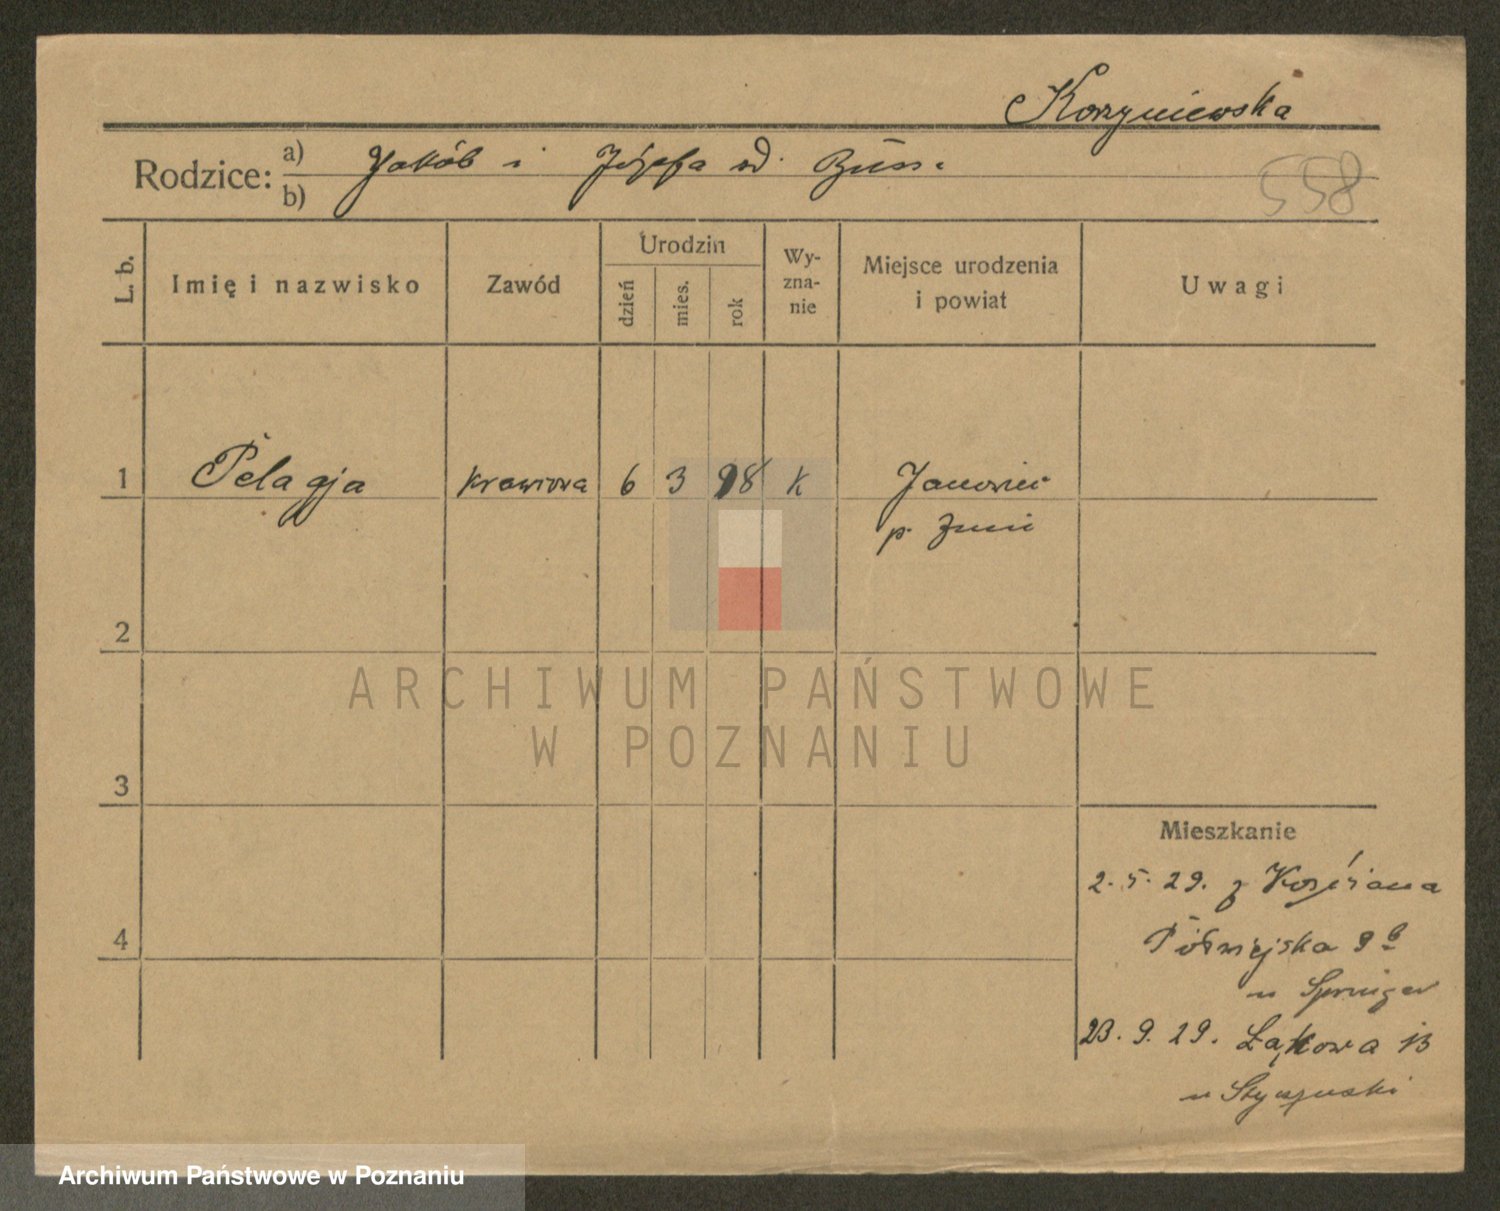 Korzyniewska
Rodzice: a) Jakób i Józefa ud. Buss.
b)
558
L. b.
Imię i nazwisko
Zawód
Urodzin
dzień
mies.
rok
Wy-
zna-
nie
Miejsce urodzenia
i powiat
Uwagi
1 Pelagja krawcowa 6 3 98 k Janowiec
p. Żnin
2
ARCHIWUM PAŃSTWOWE
W POZNANIU
3
Mieszkanie
2. 5. 29. z Kościana
4
Półwiejska 9
u
23. 9. 29. Łąkowa 13
u
Archiwum Państwowe w Poznaniu